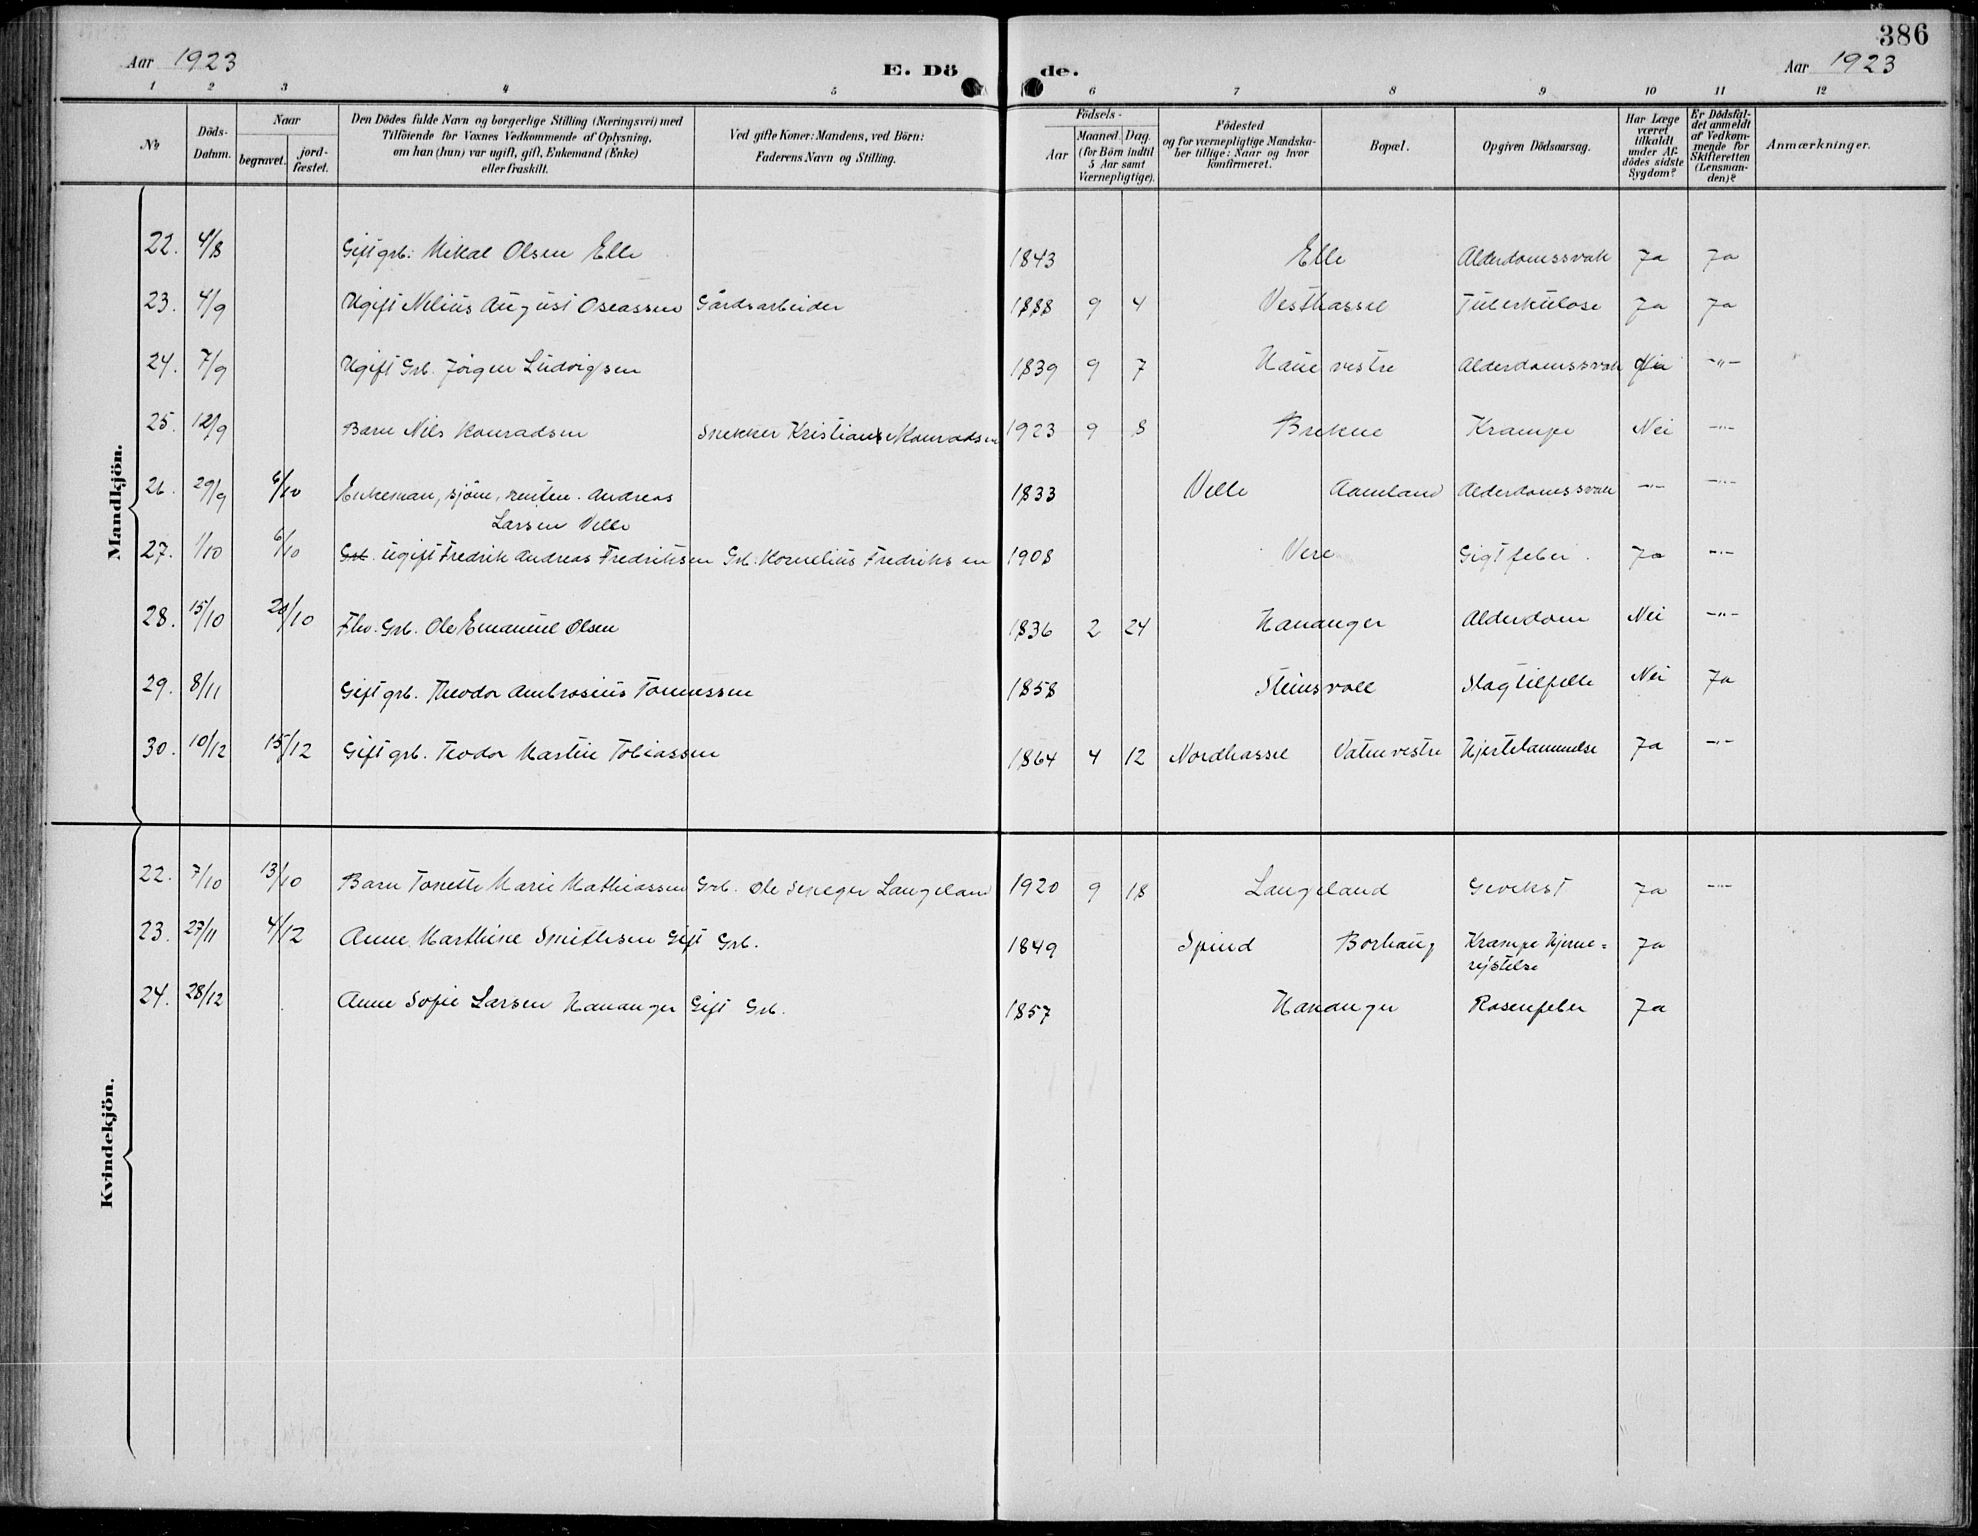 386
Aar 1923 E. Dö de. Aar 1923
1 2 3 4 5 6 7 8 9 10 11 12
No
Döds-Datum.
Naar
begravet. jord-fæstet.
Den Dödes fulde Navn og borgerlige Stilling (Næringsvei) med
Tilföiende for Voxnes Vedkommende af Oplysning,
om han (hun) var ugift, gift, Enkemand (Enke)
eller fraskilt.
Ved gifte Koner: Mandens, ved Börn:
Faderens Navn og Stilling.
Födsels-
Aar
Maaned Dag.
(for Börn indtil
5 Aar samt
Værnepligtige).
Födested
og for værnepligtige Mandska-
ber tillige: Naar og hvor
konfirmeret.
Bopæl.
Opgiven Dödsaarsag.
Har Læge
været
tilkaldt
under Af-
dödes sidste
Sygdom?
Er Dödsfal-
det anmeldt
af Vedkom-
mende for
Skifteretten
(Lensman-
den)?
Anmærkninger.
Mandkjön.
22. 4/8 Gift grb: Mikal Olsen Elle 1843 Elle Alderdomssvak Ja Ja
23. 4/9 Ugift Nilius August Oseassen Gårdsarbeider 1888 9 4 Vesthassel Tuberkulose Ja Ja
24. 7/9 Ugift Grb. Jörgen Ludvigsen 1839 9 7 Haue vestre Alderdomssvak Nei -"-
25. 12/9 Barn Nils Konradsen Snekker Kristian Konradsen 1923 9 8 Brekne Krampe Nei -"-
26. 29/9 6/10 Enkeman, sjöm, renten. Andreas 1833 Velle Aamland Alderdomssvak -"- -"-
Larsen Velle
27. 1/10 6/10 Grb. ugift Fredrik Andreas Fredriksen Grb. Kornelius Fredriksen 1908 Vere Gigtfeber. Ja -"-
28. 15/10 20/10 Fhv. Grb. Ole Emanuel Olsen 1836 2 24 Hananger Alderdom Nei -"-
29. 8/11 Gift grb. Theodor Ambrosius Tönnessen 1858 Steinsvoll Slagtilfelle Nei Ja
30. 10/12 15/12 Gift grb. Teodor Martin Tobiassen 1864 4 12 Nordhassel Vatne vestre Hjertelammelse Ja -"-
Kvindekjön.
22. 7/10 13/10 Barn Tonette Marie Mathiassen Grb. Ole Langeland 1920 9 18 Langeland Gevekst Ja -"-
23. 27/11 4/12 Anne Marthine Smithsen Gift Grb. 1849 Spind Borhaug Krampe Hjerne= Ja
rystelse
24. 28/12 Anne Sofie Larsen Hananger Gift Grb. 1857 Hananger Rosenfeber Ja